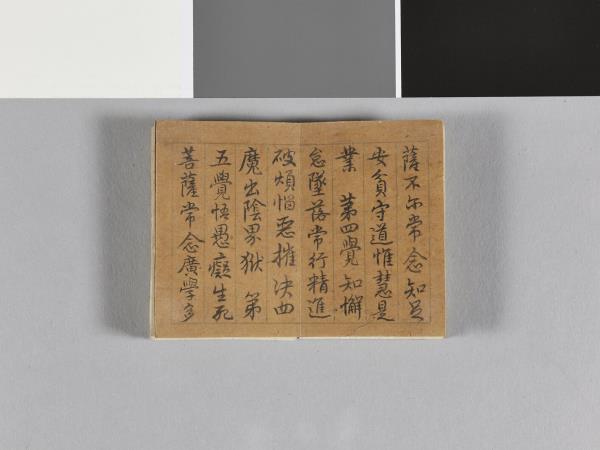 薩不尒常念知足
安貧守道惟慧是
業　苐四覺知懈
怠墜落常行精進
破煩惱惡摧決四
魔出陰界獄　苐
五覺悟愚癡生死
菩薩常念廣學多